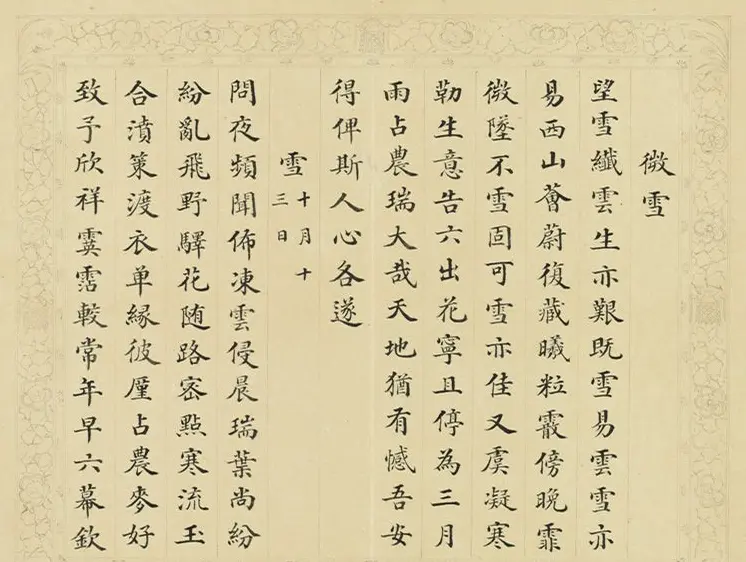 微雪
望雪纖雲生亦艱既雪易雲雪亦
易西山薈蔚復藏曦粒霰傍晚霏
微墜不雪固可雪亦佳又虞凝寒
勒生意告六出花寧且停為三月
雨占農瑞大哉天地猶有憾吾安
得俾斯人心各遂
雪十月十三日
問夜頻聞佈凍雲侵晨瑞葉尚紛
紛亂飛野驛花随路密點寒流玉
合濆策渡衣单緣彼廑占農麥好
致予欣祥霙霑較常年早六幕欽